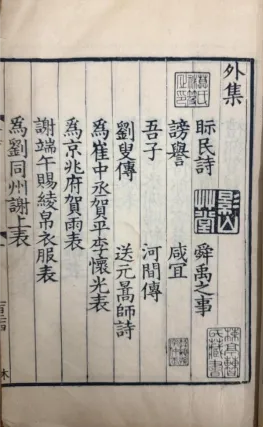 外集
眎民詩 舜禹之事
謗譽 咸宜
吾子 河間傳
劉叟傳 送元暠師詩
為崔中丞賀平李懷光表
為京兆府賀雨表
謝端午賜綾帛衣服表
為劉同州謝上表